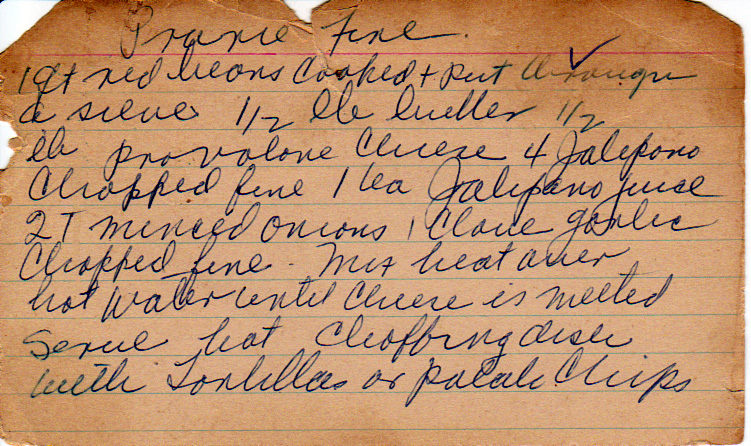 Prarie Fire
1 qt red beans Cooked + Put through
a sieve 1/2 lb butter 1/2
lb provolone Cheese 4 Jalepono
Chopped fine 1 tea Jalepano juice
2 T minced onions 1 Clove garlic
Chopped fine. Mix heat over
hot water until Cheese is melted
Serve hot Chaffing dish
with Tortillas or potato Chips